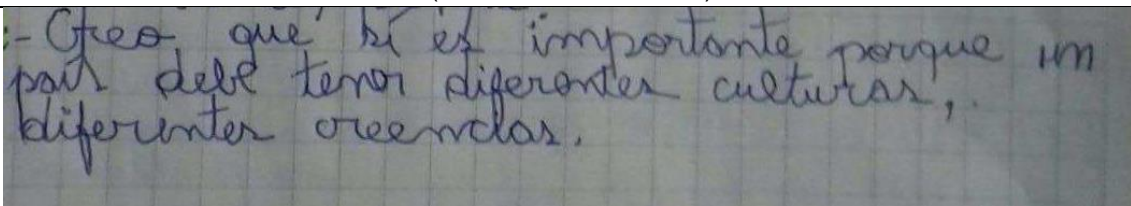 :- Creo que sí es importante porque un
país debe tener diferentes culturas,.
diferentes creencias.